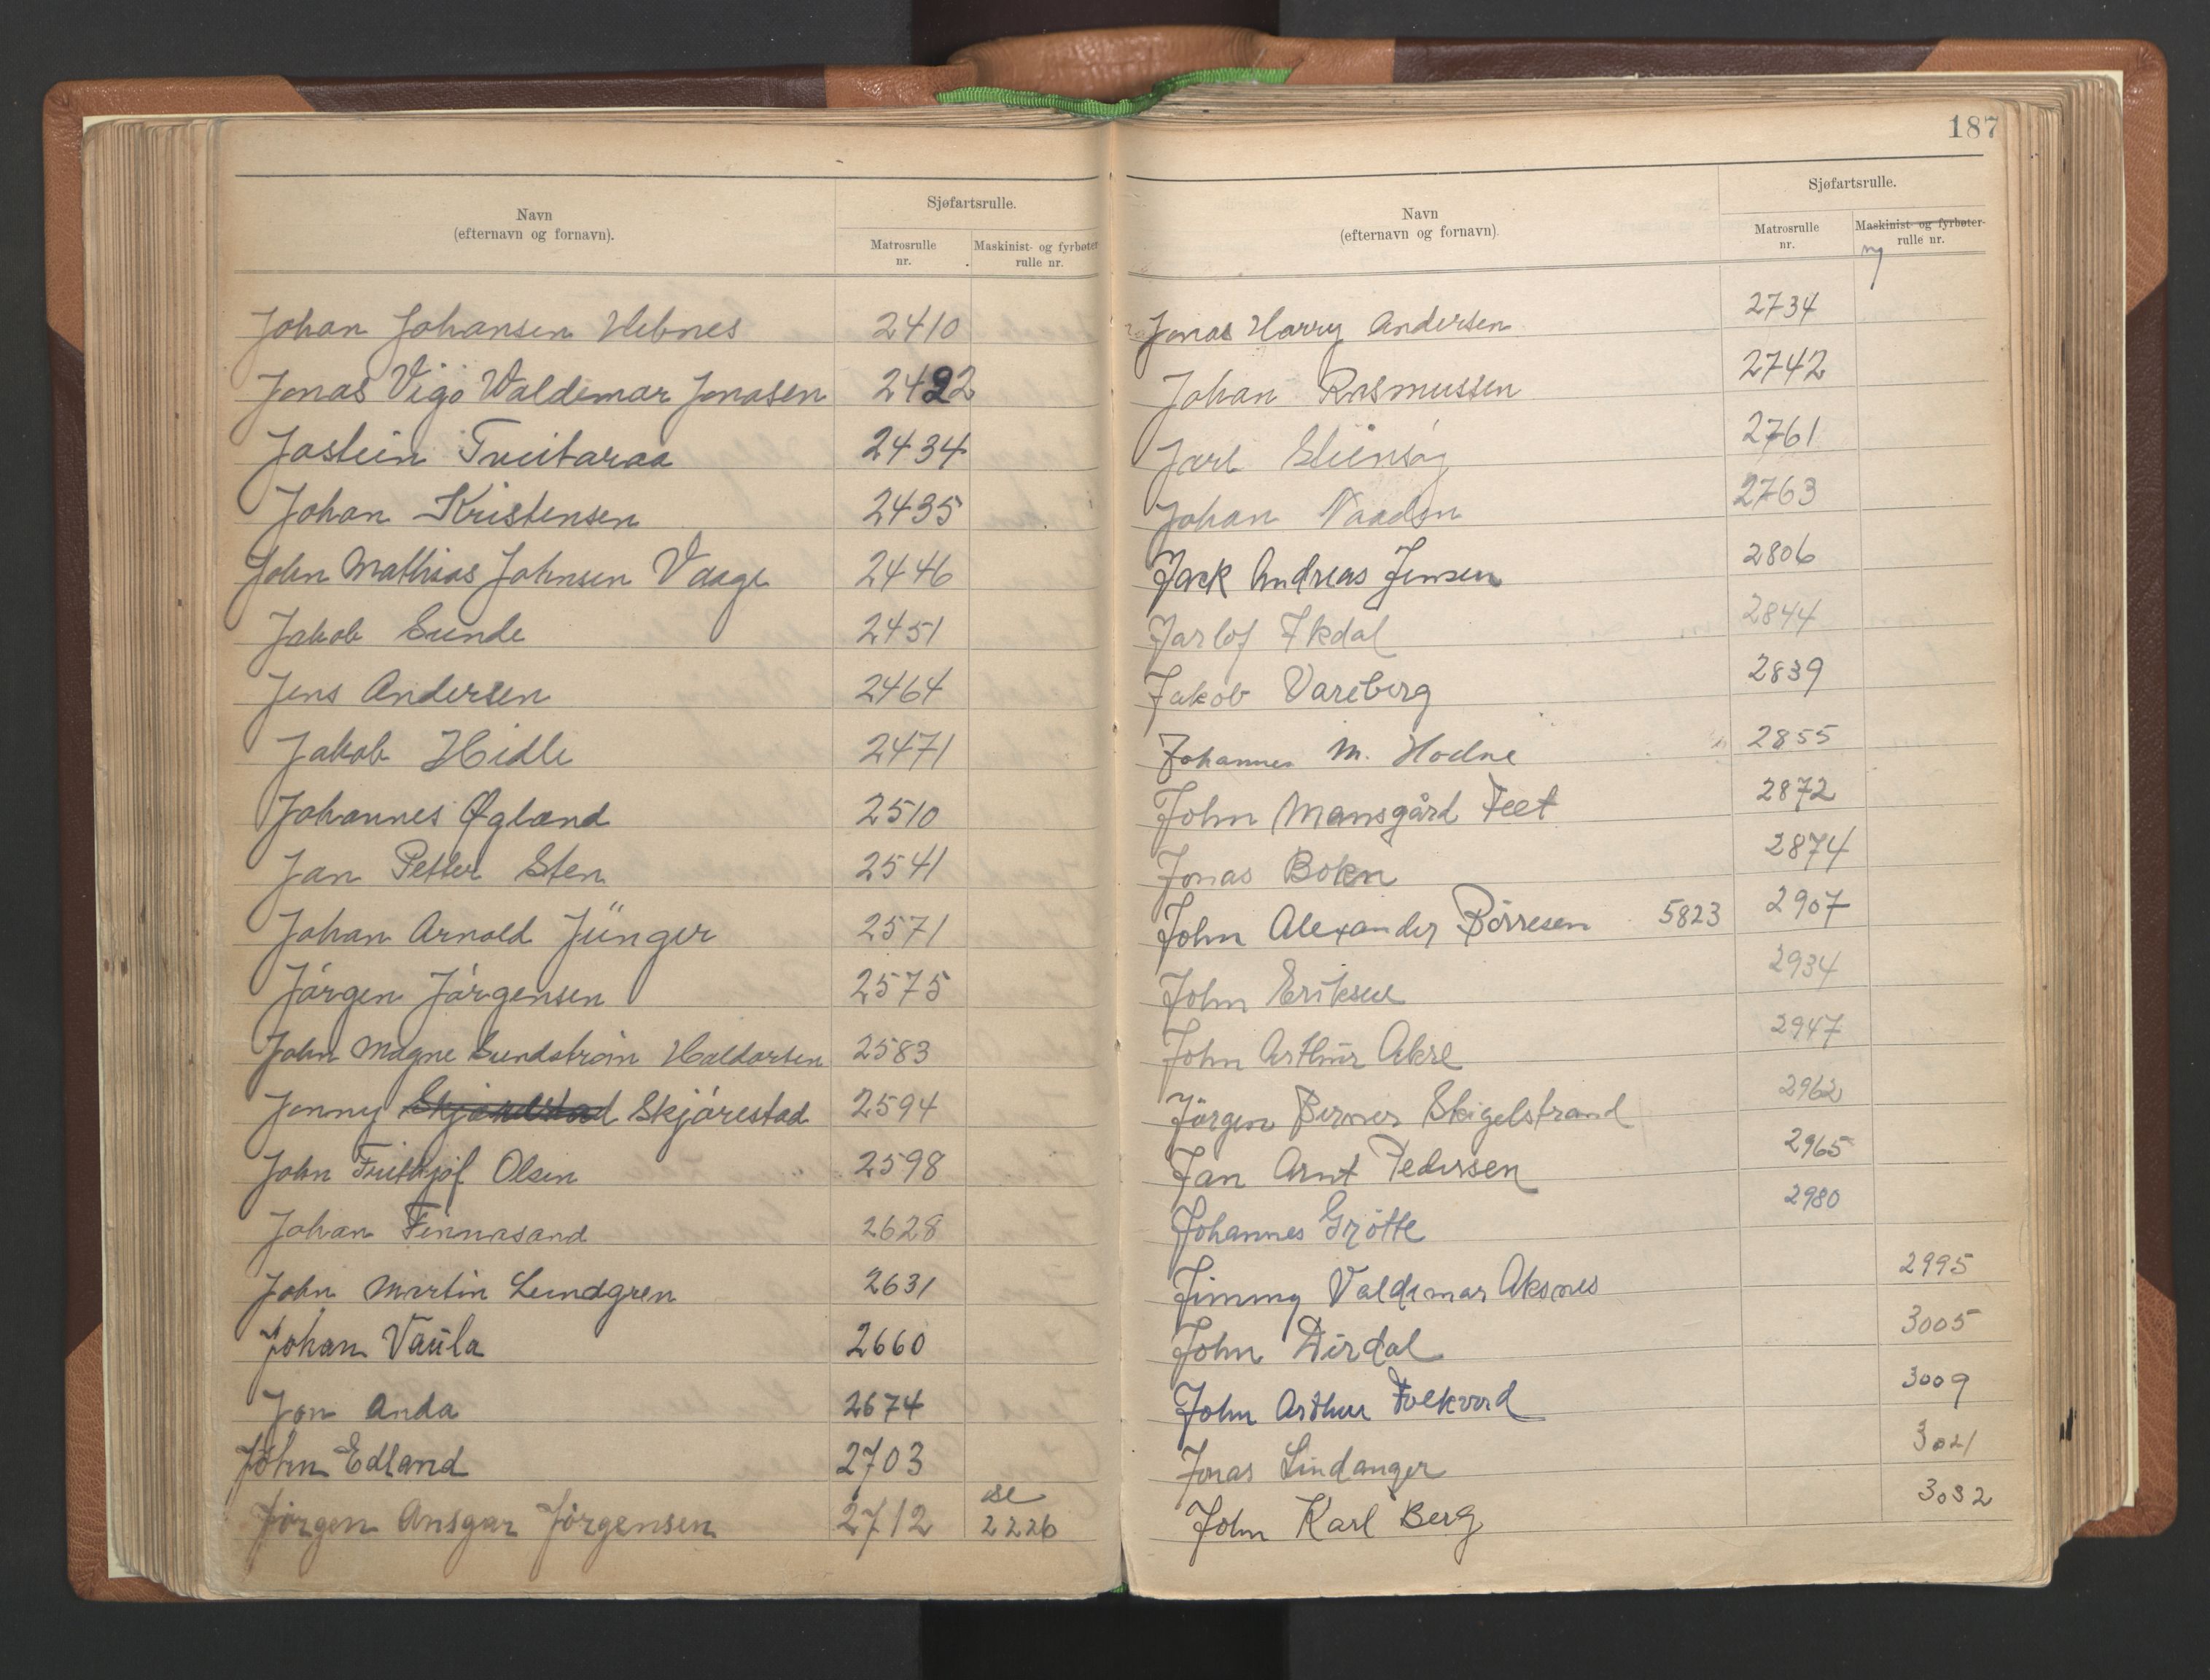 Navn
(efternavn og fornavn).
Sjøfartsrulle.
Matrosrulle
nr.
Maskinist- og fyrbøter
rulle nr.
Johan Johansen Hebnes 2410
Jonas Vigo Waldemar Jonasen 2422
Jostein Tveitaraa 2434
Johan Kristensen 2435
John Mathias Johnsen Vaage 2446
Jakob Sunde 2451
Jens Andersen 2464
Jakob Hidle 2471
Johannes Øgland 2510
Jan Petter Sten 2541
Johan Arnold Jünger 2571
Jørgen Jørgensen 2575
John Magne Sundstrøm Haldorsen 2583
Jonny Skjørestad 2594
John Frithjof Olsen 2598
Johan Finnasand 2628
John Martin Lundgren 2631
Johan Vaula 2660
Jon Anda 2674
John Edland 2703
Jørgen Ansgar Jørgensen 2712 se 2226
187
Navn
(efternavn og fornavn).
Sjøfartsrulle.
Matrosrulle
nr.
Maskinist- og fyrbøter-
rulle nr.
ny
Jonas Harry Andersen 2734
Johan Rasmussen 2742
Jarl 2761
Johan Naadn 2763
Jack Andreas Jensen 2806
Jarlof Ikdal 2844
Jakob Vareberg 2839
Johannes M. Hodne 2855
John Mansgård Feet 2872
Jonas Bokn 2874
John Alexander Børresen 5823 2907
John Eriksen 2934
John Arthur Akre 2947
Jørgen Berner Skigelstrand 2962
Jan Arnt Pedersen 2965
Johannes Grötte 2980
Jimmy Valdemar Aksnes 2995
John Dirdal 3005
John Arthur Folkvord 3009
Jonas Lindanger 3021
John Karl Berg 3032